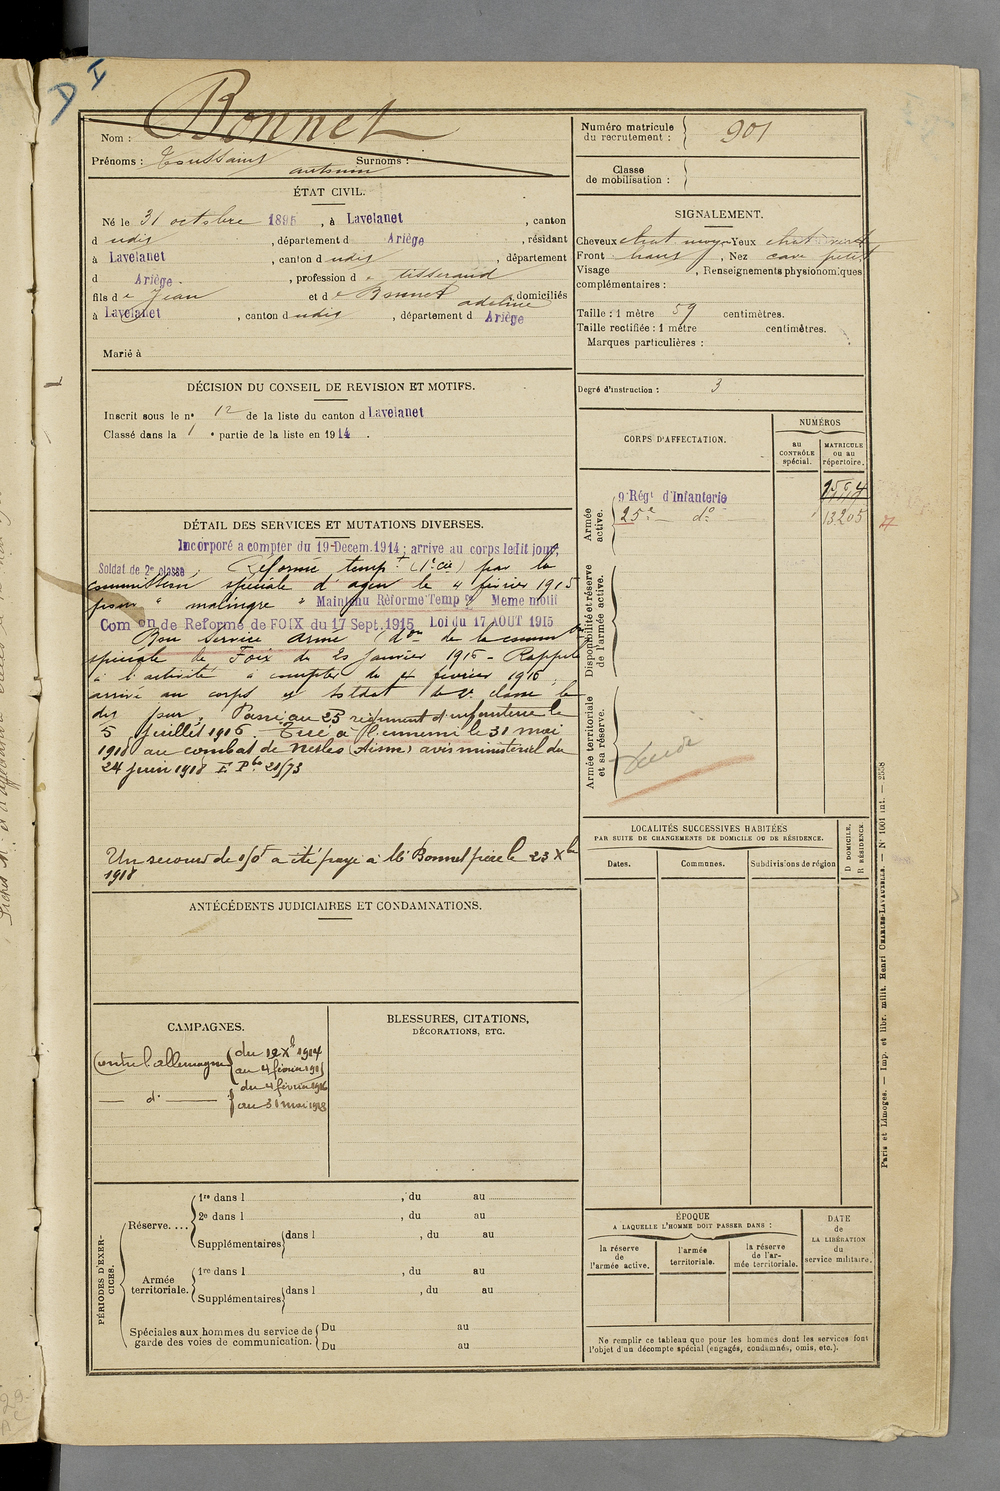 D I
Nom : Bonnet
Prénoms : Toussaint Surnoms :
antonin
ÉTAT CIVIL.
Né le 31 octobre 1895, à Lavelanet, canton
d udis, département d Ariège, résidant
à Lavelanet, canton d udis, département
d Ariège, profession d e tisserand
fils d e Jean et d e Bonnet adeline, domiciliés
à Lavelanet, canton d udis, département d Ariège
Marié à
DÉCISION DU CONSEIL DE REVISION ET MOTIFS.
Inscrit sous le n° 12 de la liste du canton d Lavelanet
Classé dans la 1 e partie de la liste en 1914.
DÉTAIL DES SERVICES ET MUTATIONS DIVERSES.
Incorporé a compter du 19 Decem. 1914; arrivé au corps ledit jour,
Soldat de 2e classe; Réformé temp.t (1e cie) par la
commission spéciale d'agen le 4 février 1915
pour " malingre " Maintenu Réformé Temp re Meme motif
Com on de Reforme de FOIX du 17 Sept. 1915 Loi du 17 AOUT 1915
Bon service armé (d on de la comm on
spéciale de Foix du 20 Janvier 1916 - Rappelé
à l'activité à compter du 4 février 1916;
arrivé au corps et soldat de 2e classe le
dit jour. Passé au 25 régiment d'infanterie le
5 juillet 1916. Tué à l'ennemi le 31 mai
1918 au combat de Nesles (Aisne) avis ministériel du
24 juin 1918 F. P. 21/73
Un secours de 150f a été payé à M. Bonnet père le 23 Xbre
1918
ANTÉCÉDENTS JUDICIAIRES ET CONDAMNATIONS.
CAMPAGNES.
Contre l'allemagne du 19 Xbre 1914
au 4 février 1915
— d° — du 4 février 1916
au 31 mai 1918
BLESSURES, CITATIONS,
DÉCORATIONS, ETC.
PÉRIODES D'EXERCICES.
Réserve....
1re dans l , du au
2e dans l , du au
Supplémentaires dans l , du au
Armée
territoriale.
1re dans l , du au
Supplémentaires dans l , du au
Spéciales aux hommes du service de
garde des voies de communication.
Du au
Du au
Numéro matricule
du recrutement : 901
Classe
de mobilisation :
SIGNALEMENT.
Cheveux chat moyen Yeux chat
Front haut, Nez cave petit
Visage , Renseignements physionomiques
complémentaires :
Taille : 1 mètre 59 centimètres.
Taille rectifiée : 1 mètre centimètres.
Marques particulières :
Degré d'instruction : 3
CORPS D'AFFECTATION.
NUMÉROS
au
CONTRÔLE
spécial.
MATRICULE
ou au
répertoire.
Armée
active.
9e Régt d'Infanterie
25e — d° — 13205
Disponibilité et réserve
de l'armée active.
Armée territoriale
et sa réserve.
LOCALITÉS SUCCESSIVES HABITÉES
PAR SUITE DE CHANGEMENTS DE DOMICILE OU DE RÉSIDENCE.
Dates.
Communes.
Subdivisions de région
D DOMICILE.
R RÉSIDENCE.
ÉPOQUE
A LAQUELLE L'HOMME DOIT PASSER DANS :
la réserve
de
l'armée active.
l'armée
territoriale.
la réserve
de l'ar-
mée territoriale.
DATE
de
LA LIBÉRATION
du
service militaire.
Ne remplir ce tableau que pour les hommes dont les services font
l'objet d'un décompte spécial (engagés, condamnés, omis, etc.).
Paris et Limoges. — Imp. et libr. milit. Henri CHARLES-LAVAUZELLE. — N° 1001 int. — 2558